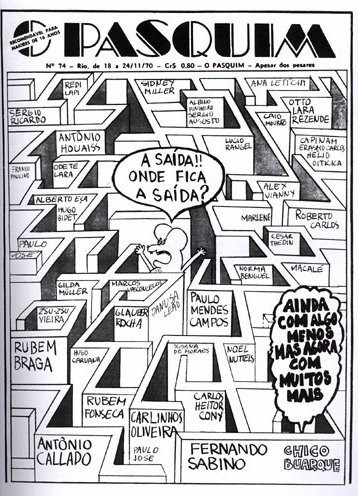 RECOMENDÁVEL PARA
MAIORES DE 16 ANOS
O PASQUIM
Nº 74 – Rio, de 18 a 24/11/70 – Cr$ 0,80 – O PASQUIM – Apesar dos pesares
REDI
LAPI
SIDNEY
MILLER
ANA LETICIA
SERGIO
RICARDO
ALBINO
PINHEIRO
SERGIO
AUGUSTO
CAIO
MOURÃO
OTTO
LARA
REZENDE
ANTÔNIO
HOUAISS
LUCIO
RANGEL
CAPINAM
ERASMO CARLOS
HELIO
OITICICA
ODETE
LARA
A SAÍDA!!
ONDE FICA
A SAÍDA?
ALEX
VIANNY
ALBERTO EÇA
HUGO
BIDET
MARLENE
ROBERTO
CARLOS
PAULO
JOSÉ
CESAR
THEDIN
GILDA
MÜLLER
MARCOS
VASCONCELOS
DANUSA
LEÃO
NORMA
BENGUEL
MACALÉ
ZSU-ZSU
VIEIRA
GLAUBER
ROCHA
PAULO
MENDES
CAMPOS
AINDA
COM ALGO
MENOS
MAS AGORA
COM
MUITOS
MAIS
RUBEM
BRAGA
HUGO
CARVANA
SUSANA
DE MORAES
NOEL
NUTELS
RUBEM
FONSECA
CARLINHOS
OLIVEIRA
CARLOS
HEITOR
CONY
ANTÔNIO
CALLADO
PAULO
JOSÉ
FERNANDO
SABINO
CHICO
BUARQUE